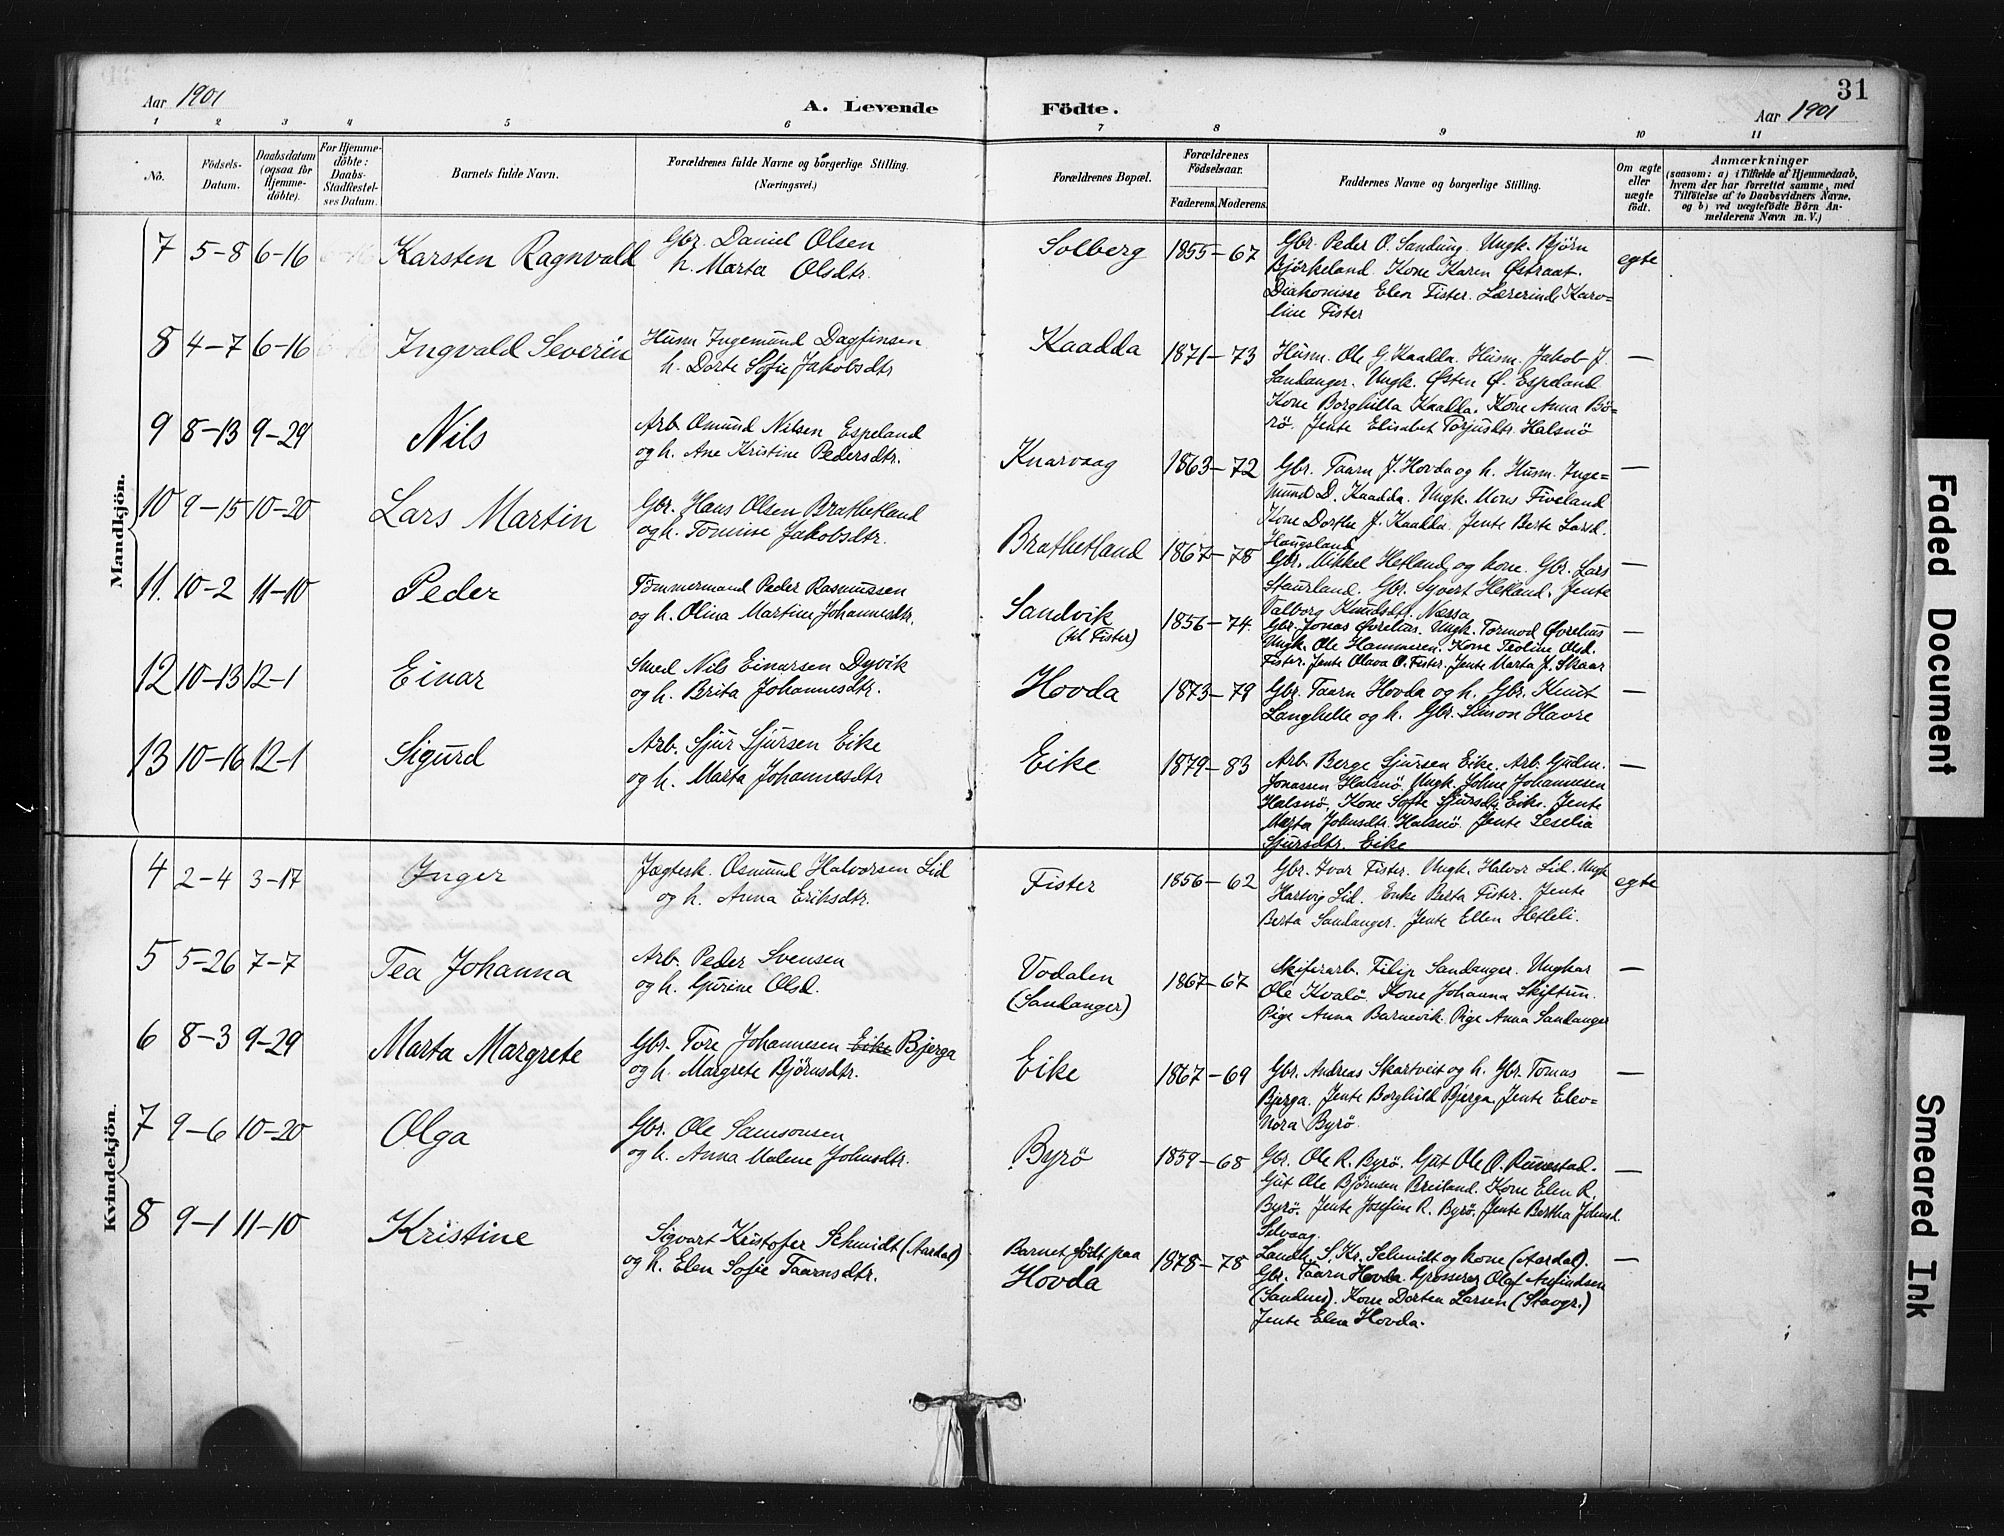 31
Aar 1901
A. Levende Födte.
Aar 1901
1 2 3 4 5 6 7 8 9 10 11
No.
Födsels-Datum.
Daabsdatum (ogsaa for Hjemme-döbte).
For Hjemme-döbte: Daabs-Stadfestel-ses Datum.
Barnets fulde Navn.
Forældrenes fulde Navne og borgerlige Stilling. (Næringsvei.)
Forældrenes Bopæl.
Forældrenes Födselsaar.
Faderens. Moderens.
Faddernes Navne og borgerlige Stilling.
Om ægte eller uægte födt.
Anmærkninger
(saasom: a) i Tilfælde af Hjemmedaab, hvem der har forrettet samme, med Tilföielse af to Daabsvidners Navne, og b) ved uægtefödte Börn An-melderens Navn m. V.)
Mandkjön.
7 5-8 6-16 Karsten Ragnvald
Gbr. Daniel Olsen
h. Marta Olsdtr.
Solberg 1855-67
Gbr. Peder O. Sandung. Ungk. Bjørn
Bjørkeland. Kone Karen Østraat.
Diakonisse Elen Fister. Lærerinde Karo-
line Fister
egte
8 4-7 6-16 Ingvald Severin
Husm Ingemund Dagfinsen
h. Dorte Sofie Jakobsdtr
Kaadda 1871-73
Husm. Ole G. Kaadda. Husm. Jakob J.
Sandanger. Ungk. Østen Ø. Espeland
Kone Borghilla Kaadda. Kone Anna Bö-
rö. Jente Elisabet Torjusdtr. Halsnö
—
9 8-13 9-29 Nils
Arb. Omund Nilsen Espeland
og h. Ane Kristine Pedersdtr.
Knarvaag 1863-72
Gbr. Taarn J. Hovda og h. Husm. Inge-
mund D. Kaadda. Ungk. Mons Fiveland
Kone Dorthe J. Kaadda. Jente Berte Larsd.
Haugsland
—
10 9-15 10-20 Lars Martin
Gbr. Hans Olsen Brathetland
og h. Tomine Jakobsdtr.
Brathetland 1867-78
Gbr. Mikkel Hetland og kone. Gbr. Lars
Staurland. Gbr. Sjovert Hetland. Jente
Valborg Knudsdtr. Næssa
—
11. 10-2 11-10 Peder
Tømmermand Peder Rasmussen
og h. Olina Martine Johannesdtr.
Sandvik
(til Fister)
1856-74.
Gbr. Jonas Øvrelius. Ungk. Tormod Øvrelius
Ungk. Ole Hammeren. Kone Teoline Olsd.
Fister. Jente Olava O. Fister. Jente Marta J. Skaar
—
12 10-13 12-1 Einar
Smed Nils Einarsen Dyvik
og h. Brita Johannesdtr.
Hovda 1873-79
Gbr. Taarn Hovda og h. Gbr. Knut
Langhelle og h. Gbr. Simon Havre
—
13 10-16 12-1 Sigurd
Arb. Sjur Sjursen Eike
og h. Marta Johannesdtr
Eike 1879-83
Arb. Berge Sjursen Eike. Arb. Gudm.
Jonassen Halsnö. Ungk. Johne Johannesen
Halsnö. Kone Sofie Sjursdtr. Eike. Jente
Marta Johnsdtr. Halsnö. Jente Seselia
Sjursdtr. Eike
—
Kvindekjön.
4 2-4 3-17 Inger
Jægtesk. Osmund Halvorsen Lid
og h. Anna Eriksdtr.
Fister 1856-62
Gbr. Ivar Fister. Ungk. Halvor Lid. Ungk
Hartvig Lid. Enke Berta Fister. Jente
Berta Sandanger. Jente Ellen Hetleli.
egte
5 5-26 7-7 Tea Johanna
Arb. Peder Svensen
og h. Gurine Olsd.
Vodalen
(Sandanger)
1867-67
Skiferarb. Filip Sandanger. Ungkar
Ole Kvalö. Kone Johanna Skiftun.
Pige Anna Barnevik. Pige Anna Sandanger
—
6 8-3 9-29 Marta Margrete
Gbr. Tore Johannesen Eike Bjerga
og h. Margrete Björnsdtr.
Eike 1867-69
Gbr. Andreas Skartveit og h. Gbr. Tomas
Bjerga. Jente Borghild Bjerga. Jente Eleo-
nora Byrö.
—
7 9-6 10-20 Olga
Gbr. Ole Samsonsen
og h. Anna Malene Johnsdtr.
Byrö 1859-68
Gbr. Ole R. Byrö. Gut Ole O. Runestad.
Gut Ole Björnsen Breiland. Kone Elen R.
Byrö. Jente Josefine R. Byrö. Jente Bertha Johnsd.
Selvaag.
—
8 9-1 11-10 Kristine
Sigvart Kristofer Schmidt (Aardal)
og h. Elen Sofie Taarnsdtr.
Barnet født paa
Hovda
1878-78
Landh. S. Kr. Schmidt og kone (Aardal).
Gbr. Taarn Hovda. Grosserer Olaf Anfindsen
(Sandnes). Kone Dorten Larsen (Stavgr.)
Jente Elen Hovda.
—
Faded Document
Smeared Ink